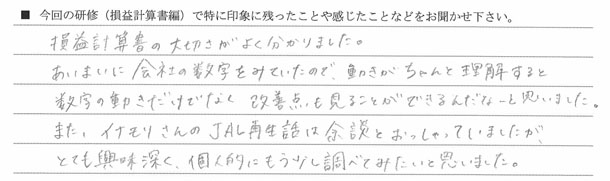 ■ 今回の研修（損益計算書編）で特に印象に残ったことや感じたことなどをお聞かせ下さい。
損益計算書の大切さがよく分かりました。
あいまいに会社の数字をみていたので、動きがちゃんと理解すると
数字の動きだけでなく改善点も見ることができるんだなーと思いました。
また、イナモリさんのJAL再生話は余談とおっしゃっていましたが、
とても興味深く、個人的にもう少し調べてみたいと思いました。